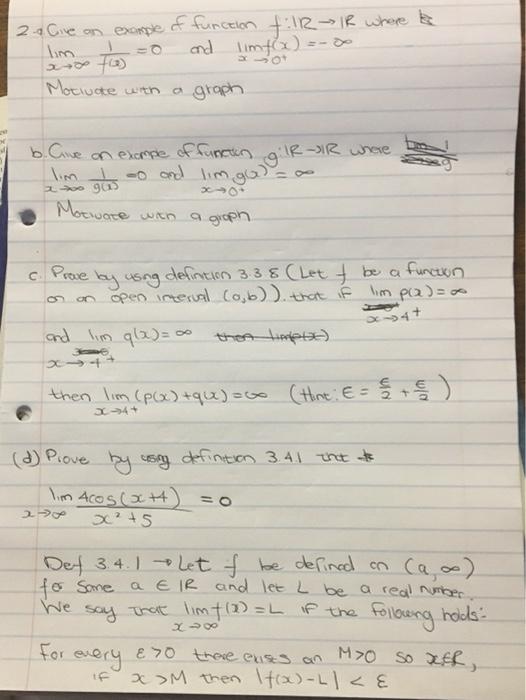 2.a Give an example of function f: IR → IR where
lim x→∞ 1/f(x) = 0 and lim x→0+ f(x) = -∞
Motivate with a graph
b. Give an example of function g: IR → IR where
lim x→∞ 1/g(x) = 0 and lim x→0+ g(x) = ∞
Motivate with a graph
c. Prove by using definition 3.3.8 (Let f be a function
on an open interval (a,b)). that if lim x→4+ p(x) = ∞
and lim x→4+ q(x) = ∞
then lim x→4+ (p(x) + q(x) = ∞ (Hint: ε = ε/2 + ε/2)
(d) Prove by using definition 3.4.1 that
lim x→∞ 4cos(x+4) / x² + 5 = 0
Def 3.4.1 → Let f be defined on (a, ∞)
for some a ∈ IR and let L be a real number.
We say that lim x→∞ f(x) = L if the following holds:
For every ε > 0 there exists an M > 0 so x∈R,
if x > M then |f(x) - L| < ε